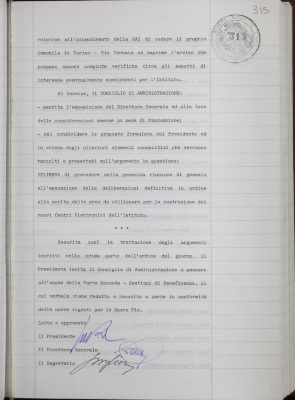 315
relative all'intendimento della SAI di cedere il proprio
immobile in Torino - Via Consola ed esprime l'avviso che
possano essere compiute verifiche circa gli aspetti di
interesse eventualmente consistenti per l'Istituto.
Al termine, IL CONSIGLIO DI AMMINISTRAZIONE:
- sentita l'esposizione del Direttore Generale ed alla luce
delle considerazioni emerse in sede di discussione;
- nel condividere le proposte formulate dal Presidente ed
in attesa degli ulteriori elementi conoscitivi che verranno
raccolti e presentati sull'argomento in questione;
DELIBERA di procedere nella prossima riunione di gennaio
all'assunzione delle deliberazioni definitive in ordine
alla scelta delle aree da utilizzare per la costruzione dei
nuovi Centri Elettronici dell'Istituto.
* * *
Esaurita così la trattazione degli argomenti
iscritti nella prima parte dell'ordine del giorno, il
Presidente invita il Consiglio di Amministrazione a passare
all'esame della Parte Seconda - Gestioni di Beneficenza, il
cui verbale viene redatto e raccolto a parte in conformità
delle norme vigenti per le Opere Pie.
Letto e approvato
Il Presidente
Il Direttore Generale
Il Segretario